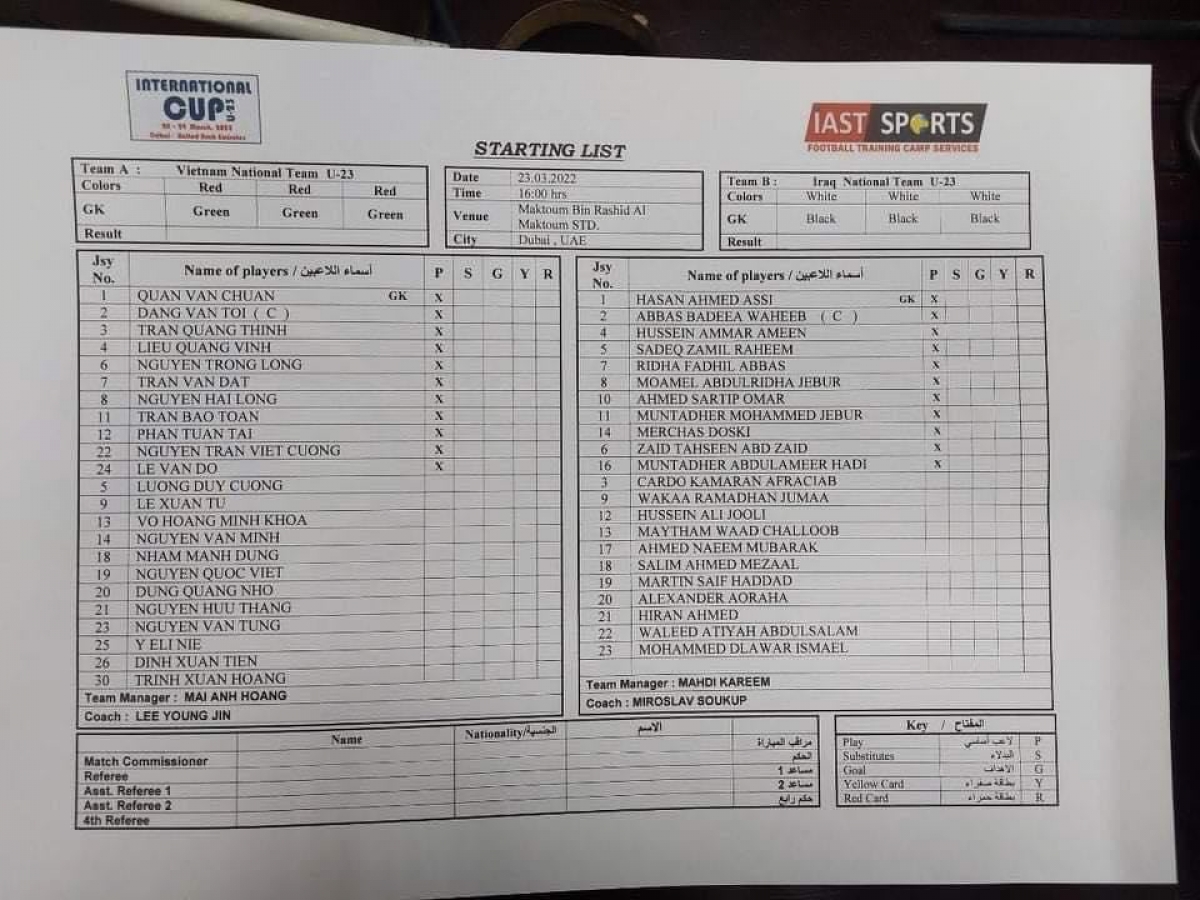 INTERNATIONAL
CUP U-23
Dubai - United Arab Emirates
IAST SPORTS
FOOTBALL TRAINING CAMP SERVICES
STARTING LIST
Team A : Vietnam National Team U-23
Colors Red Red Red
GK Green Green Green
Result
Date 23.03.2022
Time 16:00 hrs
Venue Maktoum Bin Rashid Al
Maktoum STD.
City Dubai , UAE
Team B : Iraq National Team U-23
Colors White White White
GK Black Black Black
Result
Jsy No. Name of players / أسماء اللاعبين P S G Y R
1 QUAN VAN CHUAN GK X
2 DANG VAN TOI ( C ) X
3 TRAN QUANG THINH X
4 LIEU QUANG VINH X
6 NGUYEN TRONG LONG X
7 TRAN VAN DAT X
8 NGUYEN HAI LONG X
11 TRAN BAO TOAN X
12 PHAN TUAN TAI X
22 NGUYEN TRAN VIET CUONG X
24 LE VAN DO X
5 LUONG DUY CUONG
9 LE XUAN TU
13 VO HOANG MINH KHOA
14 NGUYEN VAN MINH
18 NHAM MANH DUNG
19 NGUYEN QUOC VIET
20 DUNG QUANG NHO
21 NGUYEN HUU THANG
23 NGUYEN VAN TUNG
25 Y ELI NIE
26 DINH XUAN TIEN
30 TRINH XUAN HOANG
Team Manager : MAI ANH HOANG
Coach : LEE YOUNG JIN
Jsy No. Name of players / أسماء اللاعبين P S G Y R
1 HASAN AHMED ASSI GK X
2 ABBAS BADEEA WAHEEB ( C ) X
4 HUSSEIN AMMAR AMEEN X
5 SADEQ ZAMIL RAHEEM X
7 RIDHA FADHIL ABBAS X
8 MOAMEL ABDULRIDHA JEBUR X
10 AHMED SARTIP OMAR X
11 MUNTADHER MOHAMMED JEBUR X
14 MERCHAS DOSKI X
6 ZAID TAHSEEN ABD ZAID X
16 MUNTADHER ABDULAMEER HADI X
3 CARDO KAMARAN AFRACIAB
9 WAKAA RAMADHAN JUMAA
12 HUSSEIN ALI JOOLI
13 MAYTHAM WAAD CHALLOOB
17 AHMED NAEEM MUBARAK
18 SALIM AHMED MEZAAL
19 MARTIN SAIF HADDAD
20 ALEXANDER AORAHA
21 HIRAN AHMED
22 WALEED ATIYAH ABDULSALAM
23 MOHAMMED DLAWAR ISMAEL
Team Manager : MAHDI KAREEM
Coach : MIROSLAV SOUKUP
Name Nationality/الجنسية الاسم
Match Commissioner مراقب المباراة
Referee الحكم
Asst. Referee 1 مساعد 1
Asst. Referee 2 مساعد 2
4th Referee حكم رابع
Key / المفتاح
Play لاعب أساسي P
Substitutes البدلاء S
Goal الأهداف G
Yellow Card بطاقة صفراء Y
Red Card بطاقة حمراء R